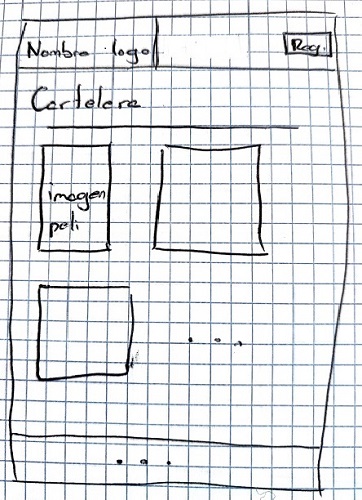 Nombre logo
Reg.
Cartelera
imagen
peli
...
...